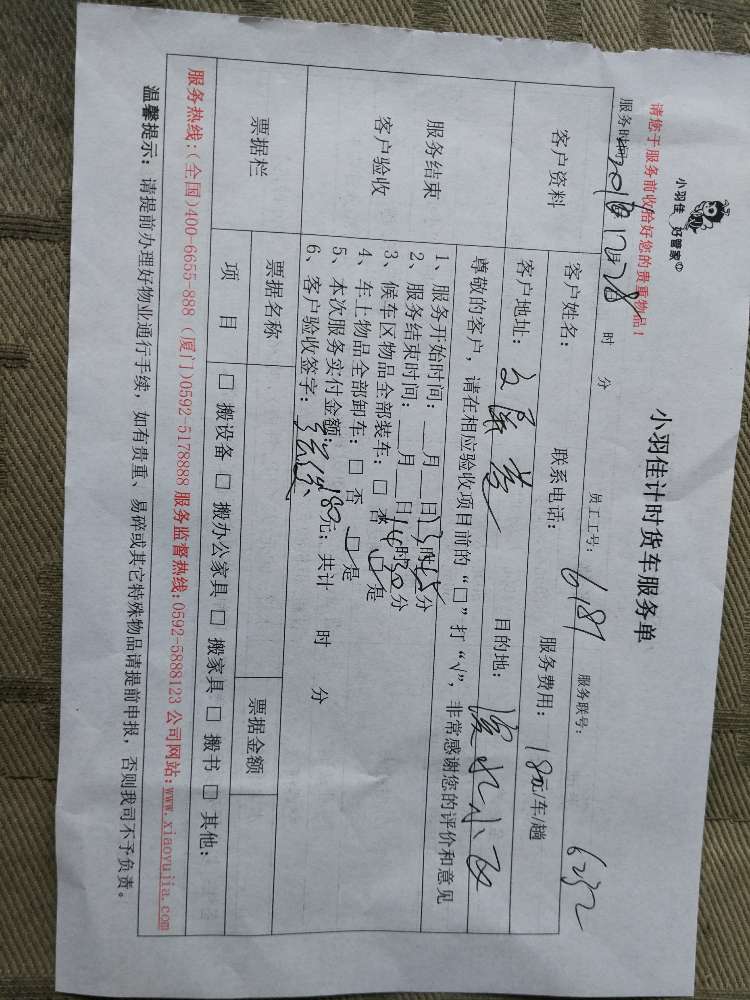 小羽佳 好管家
小羽佳计时货车服务单
请您于服务前收拾好您的贵重物品！
服务时间：2018年12月28 时 分 员工工号：6187 服务联号：6232
客户资料
客户姓名： 联系电话： 服务费用：180元/车/趟
客户地址： 目的地：
服务结束
客户验收
尊敬的客户，请在相应验收项目前的“□”打“√”，非常感谢您的评价和意见
1、服务开始时间：__月__日13时45分
2、服务结束时间：__月__日14时50分
3、候车区物品全部装车：□ 否 □ 是
4、车上物品全部卸车：□ 否 □ 是
5、本次服务实付金额：180元；共计 时 分
6、客户验收签字：
票据栏
票据名称 票据金额
项 目 □ 搬设备 □ 搬办公家具 □ 搬家具 □ 搬书 □ 其他：
服务热线：(全国)400-6655-888 (厦门)0592-5178888 服务监督热线：0592-5888123 公司网站：www.xiaoyujia.com
温馨提示：请提前办理好物业通行手续，如有贵重、易碎或其它特殊物品请提前申报，否则我司不予负责。